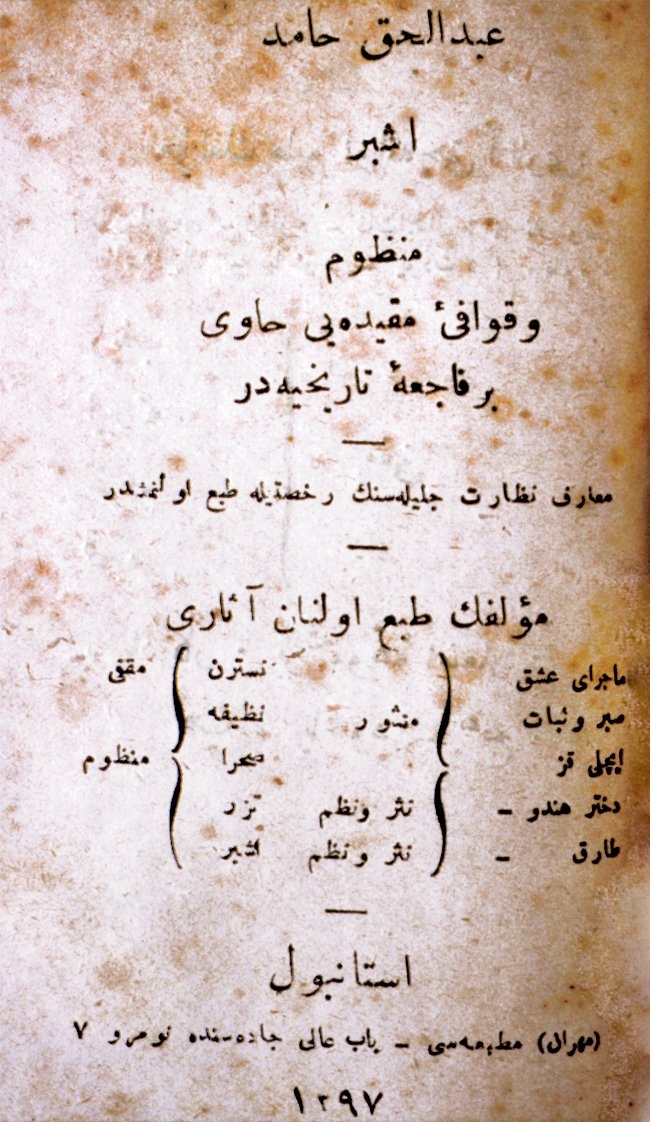 عبدالحق حامد
اشبر
منظوم
و قوافئ مقيده‌يى حاوى
بر فاجعۀ تاريخيه‌در
معارف نظارت جليله‌سنك رخصتيله طبع اولنمشدر
مؤلفك طبع اولنان آثارى
ماجراى عشق نسترن مقفى
صبر و ثبات منثور نظيفه
ايچلى قز صحرا منظوم
دختر هندو – نثر ونظم تزر
طارق – نثر ونظم اشبر
استانبول
(مهران) مطبعه‌سى – باب عالى جاده‌سنده نومرو ٧
١٢٩٧